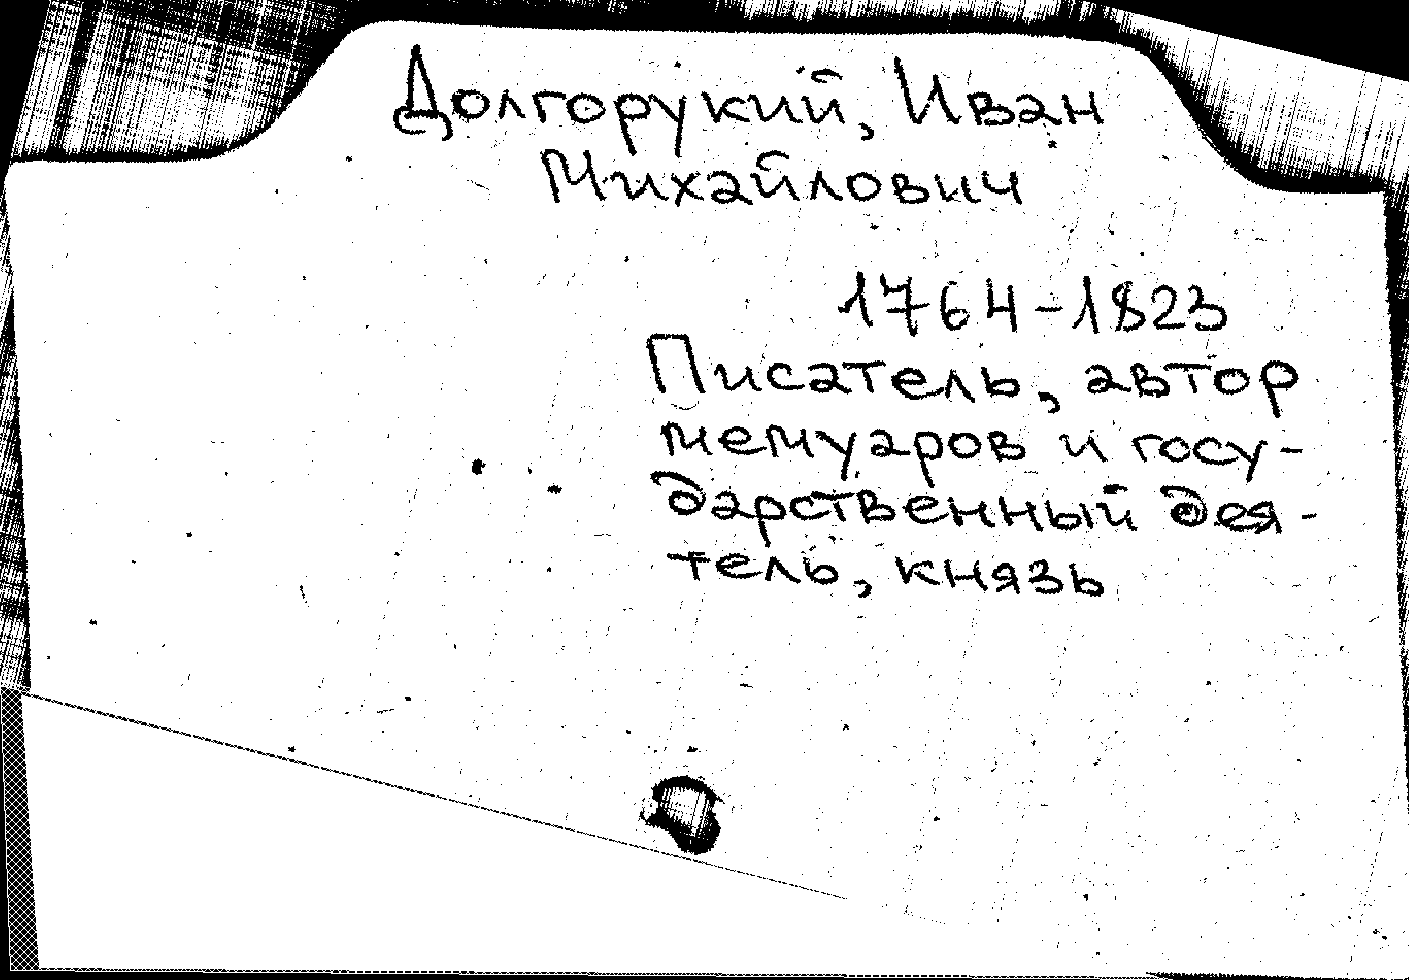 Долгорукий, Иван
Михайлович
1764-1823
Писатель, автор
мемуаров и госу-
дарственный дея-
тель, князь